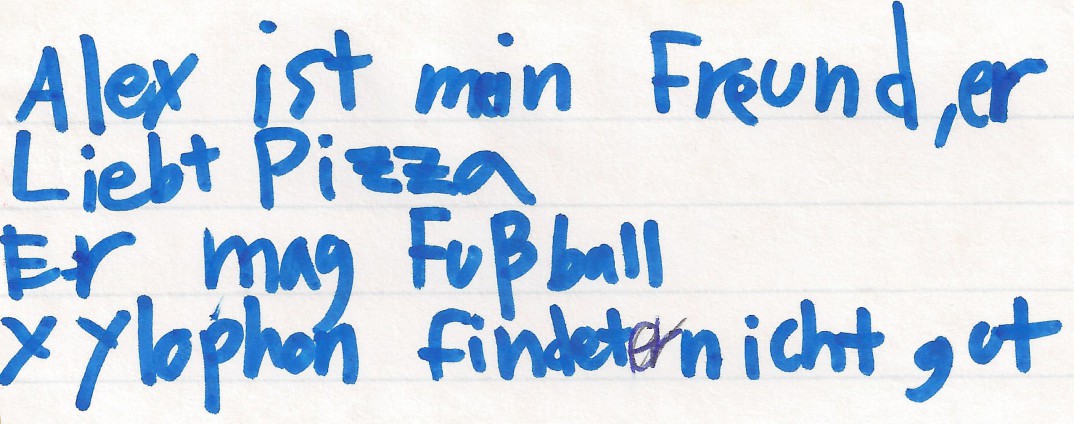 Alex ist mein Freund, er
Liebt Pizza
Er mag Fußball
Xylophon findet er nicht gut